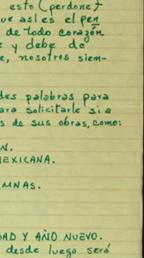 esto (perdone)
ue así es el pen
de todo corazón
e y debe de
e, nosotros siem-
des palabras para
ara solicitarle si a
s de sus obras, como:
N.
MEXICANA.
MNAS.
DAD Y AÑO NUEVO.
desde luego será